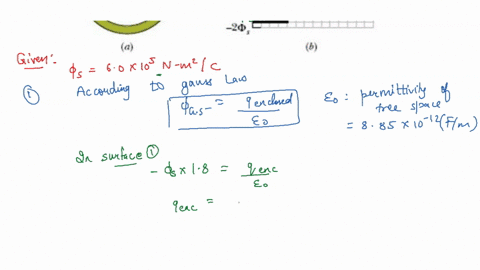 -2Φs
(a) (b)
Given:-
ϕs = 6.0 × 10⁵ N-m²/C
① According to gauss Law
ϕGs = qenclosed/ε0
ε0 : permittivity of free space
= 8.85 × 10⁻¹² (F/m)
In surface ①
- ϕs × 1.8 = qenc/ε0
qenc =